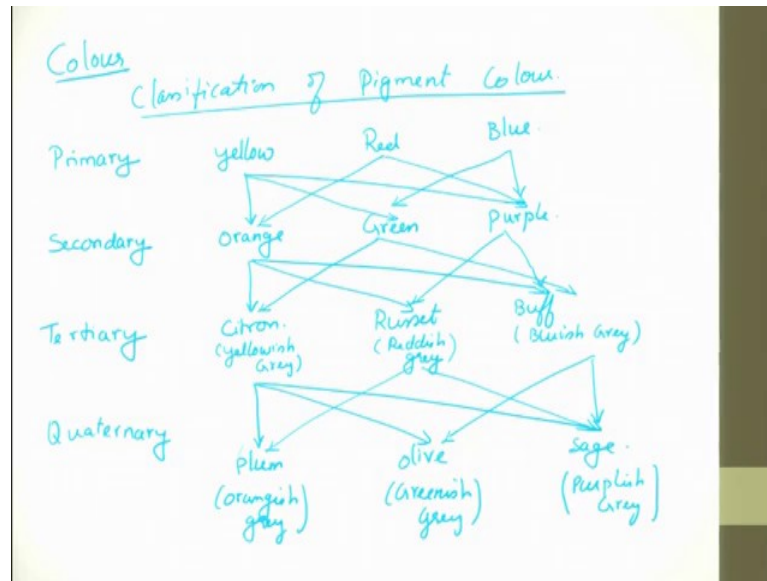 Colour
Classification of Pigment Colour.
Primary yellow Red Blue.
Secondary Orange Green Purple.
Tertiary Citron. Russet Buff
(yellowish Grey) (Reddish grey) (Bluish Grey)
Quaternary plum olive sage.
(orangish grey) (Greenish Grey) (Purplish Grey)